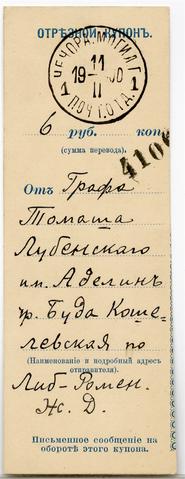 ОТРѢЗНОЙ КУПОНЪ.
ЧЕЧОРА. МОГИЛ. Г.
11
19 00
II
1 1
ПОЧТ. ОТД.
6 руб. коп
(сумма перевода).
Отъ Графа
Томаша
Лубенскаго
им. Аделинъ
Буда Коше-
левская по
(Наименованіе и подробный адресъ
отправителя).
Либ-Ромен.
Ж. Д.
Письменное сообщеніе на
оборотѣ этого купона.